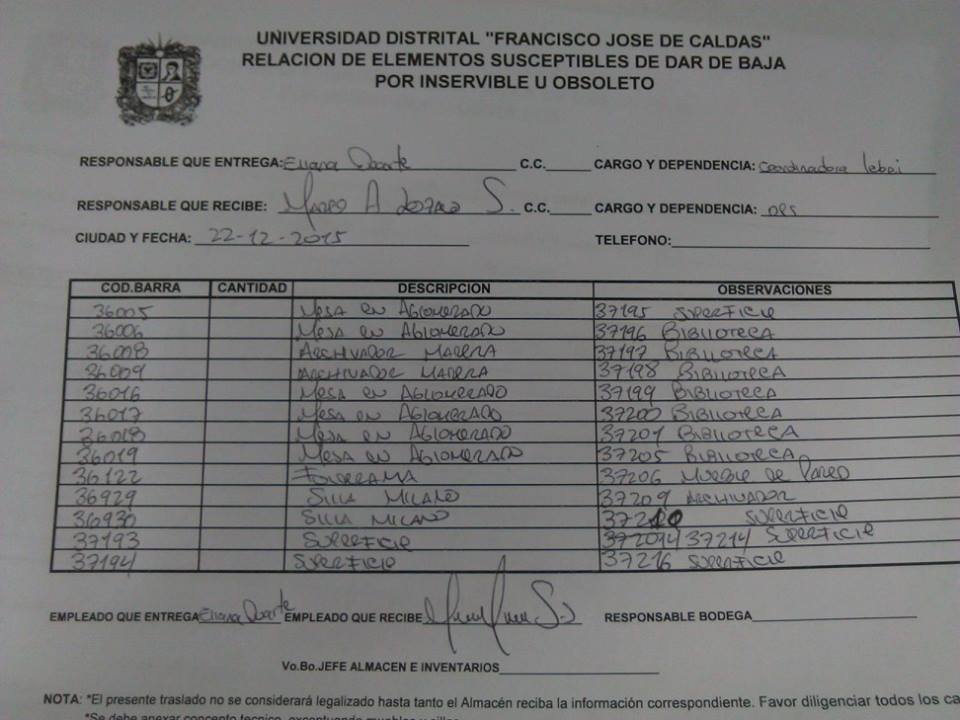 UNIVERSIDAD DISTRITAL "FRANCISCO JOSE DE CALDAS"
RELACION DE ELEMENTOS SUSCEPTIBLES DE DAR DE BAJA
POR INSERVIBLE U OBSOLETO
RESPONSABLE QUE ENTREGA: Eliana Duarte C.C. CARGO Y DEPENDENCIA: Coordinadora lebei
RESPONSABLE QUE RECIBE: A Lozano S. C.C. CARGO Y DEPENDENCIA: OPS
CIUDAD Y FECHA: 22-12-2015 TELEFONO:
COD.BARRA CANTIDAD DESCRIPCION OBSERVACIONES
36005 Mesa en Aglomerado 37195 Superficie
36006 Mesa en Aglomerado 37196 Biblioteca
36008 Archivador Madera 37197 Biblioteca
36009 Archivador Madera 37198 Biblioteca
36016 Mesa en Aglomerado 37199 Biblioteca
36017 Mesa en Aglomerado 37200 Biblioteca
36018 Mesa en Aglomerado 37201 Biblioteca
36019 Mesa en Aglomerado 37205 Biblioteca
36122 Folderama 37206 Mueble de Pared
36929 Silla Milano 37209 Archivador
36930 Silla Milano 37210 Superficie
37193 Superficie 37214 Superficie
37194 Superficie 37216 Superficie
EMPLEADO QUE ENTREGA Eliana Duarte EMPLEADO QUE RECIBE RESPONSABLE BODEGA
Vo.Bo.JEFE ALMACEN E INVENTARIOS
NOTA: *El presente traslado no se considerará legalizado hasta tanto el Almacén reciba la información correspondiente. Favor diligenciar todos los ca
*Se debe anexar concepto tecnico, exceptuando muebles y sillas